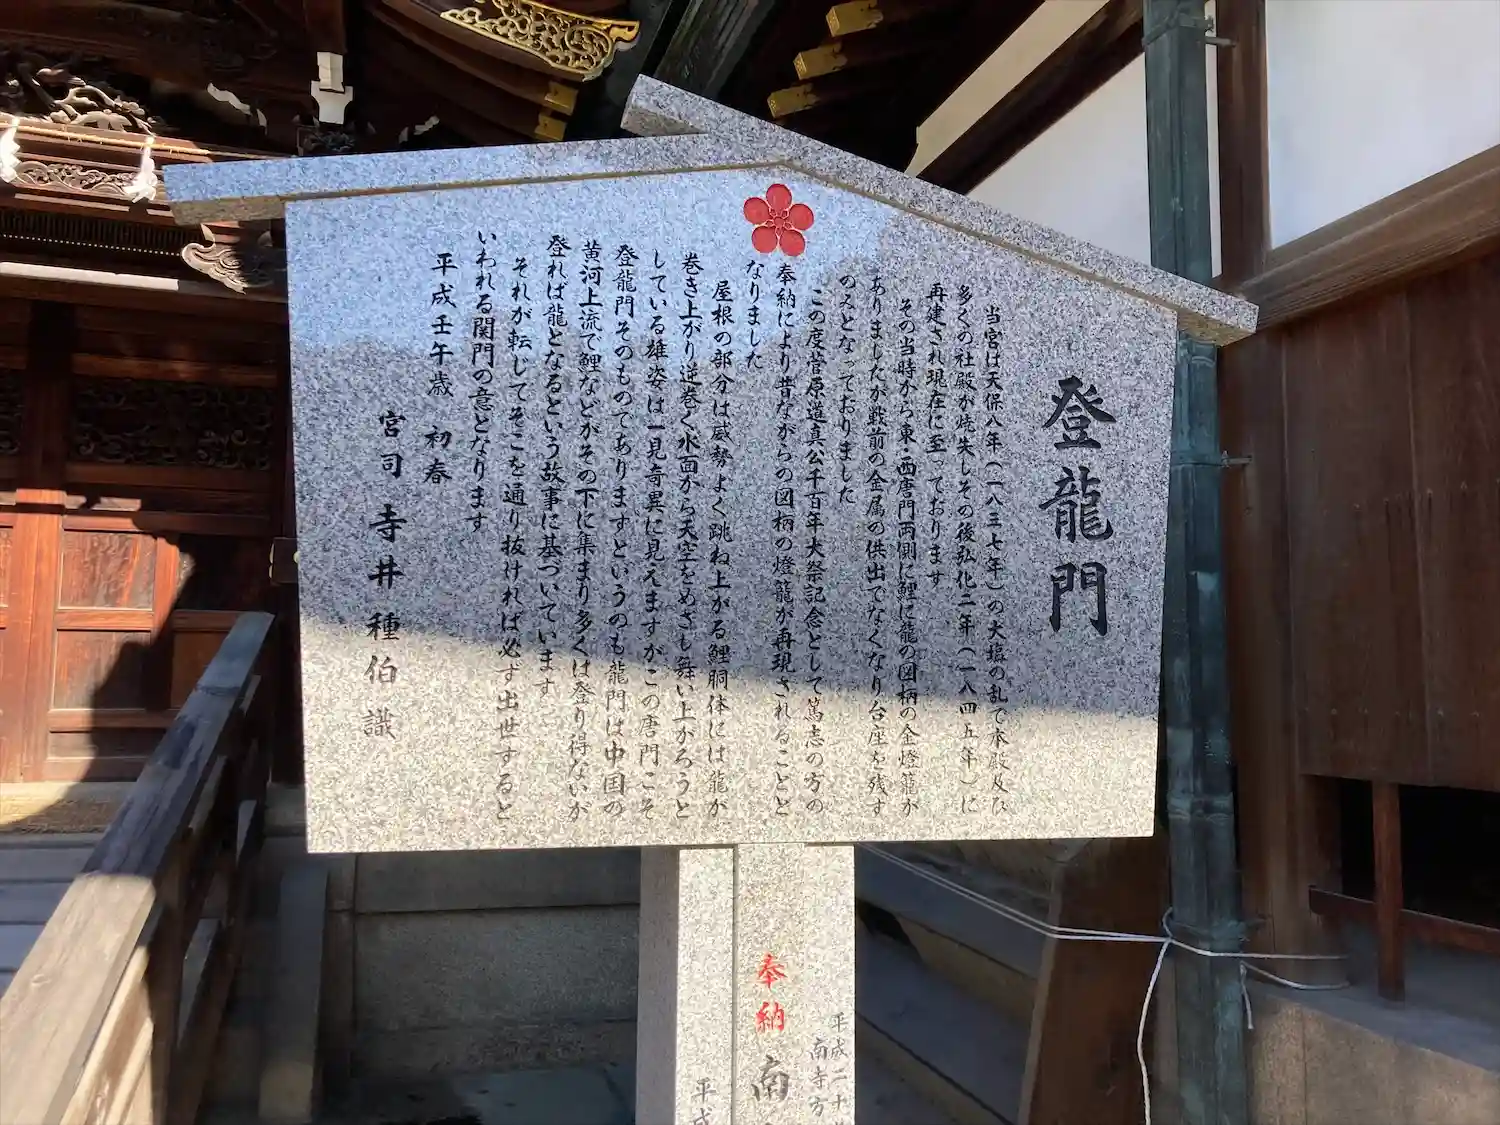 登龍門
当宮は天保八年(一八三七年)の大塩の乱で本殿及び
多くの社殿が焼失しその後弘化二年(一八四五年)に
再建され現在に至っております
その当時から東・西唐門両側に鯉に龍の図柄の金燈籠が
ありましたが戦前の金属の供出でなくなり台座を残す
のみとなっておりました
この度菅原道真公千百年大祭記念として篤志の方の
奉納により昔ながらの図柄の燈籠が再現されることと
なりました
屋根の部分は威勢よく跳ね上がる鯉胴体には龍が
巻き上がり逆巻く水面から天空をめざし舞い上がろうと
している雄姿は一見奇異に見えますがこの唐門こそ
登龍門そのものでありますというのも龍門は中国の
黄河上流で鯉などがその下に集まり多くは登り得ないが
登れば龍となるという故事に基づいています
それが転じてそこを通り抜ければ必ず出世すると
いわれる関門の意となります
平成壬午歳 初春
宮司 寺井種伯 識
平成二十
南寺方
奉納 南
平成